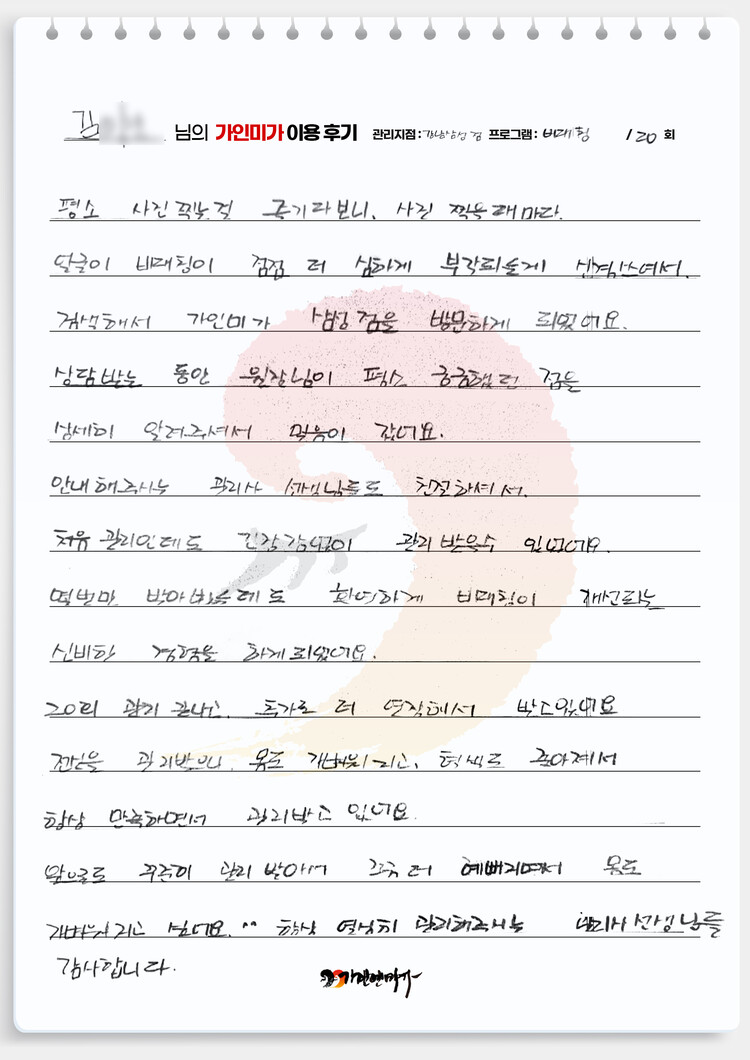 김 님의 가인미가 이용 후기 관리지점: 강남삼성점 프로그램: 비대칭 / 20 회
평소 사진 찍는걸 즐기다보니, 사진 찍을때마다.
얼굴이 비대칭이 점점 더 심하게 부각되는게 신경쓰여서.
검색해서 가인미가 삼성점을 방문하게 되었어요.
상담받는 동안 원장님이 평소 궁금했던 점을
상세히 알려주셔서 믿음이 갔어요.
안내해주시는 관리사 선생님들도 친절하셔서.
처음 관리인데도 긴장감없이 관리 받을수 있었어요.
몇번만 받아봤는데도 확연하게 비대칭이 개선되는
신비한 경험을 하게되었어요.
20회 관리 끝나고, 추가로 더 연장해서 받고있어요
전신을 관리받으니 몸도 가벼워지고, 혈색도 좋아져서
항상 만족하면서 관리받고 있어요.
앞으로도 꾸준히 관리 받아서 더 예뻐지면서 몸도
가벼워지고 싶네요. ^^ 항상 열심히 관리해주시는 관리사 선생님들
감사합니다.